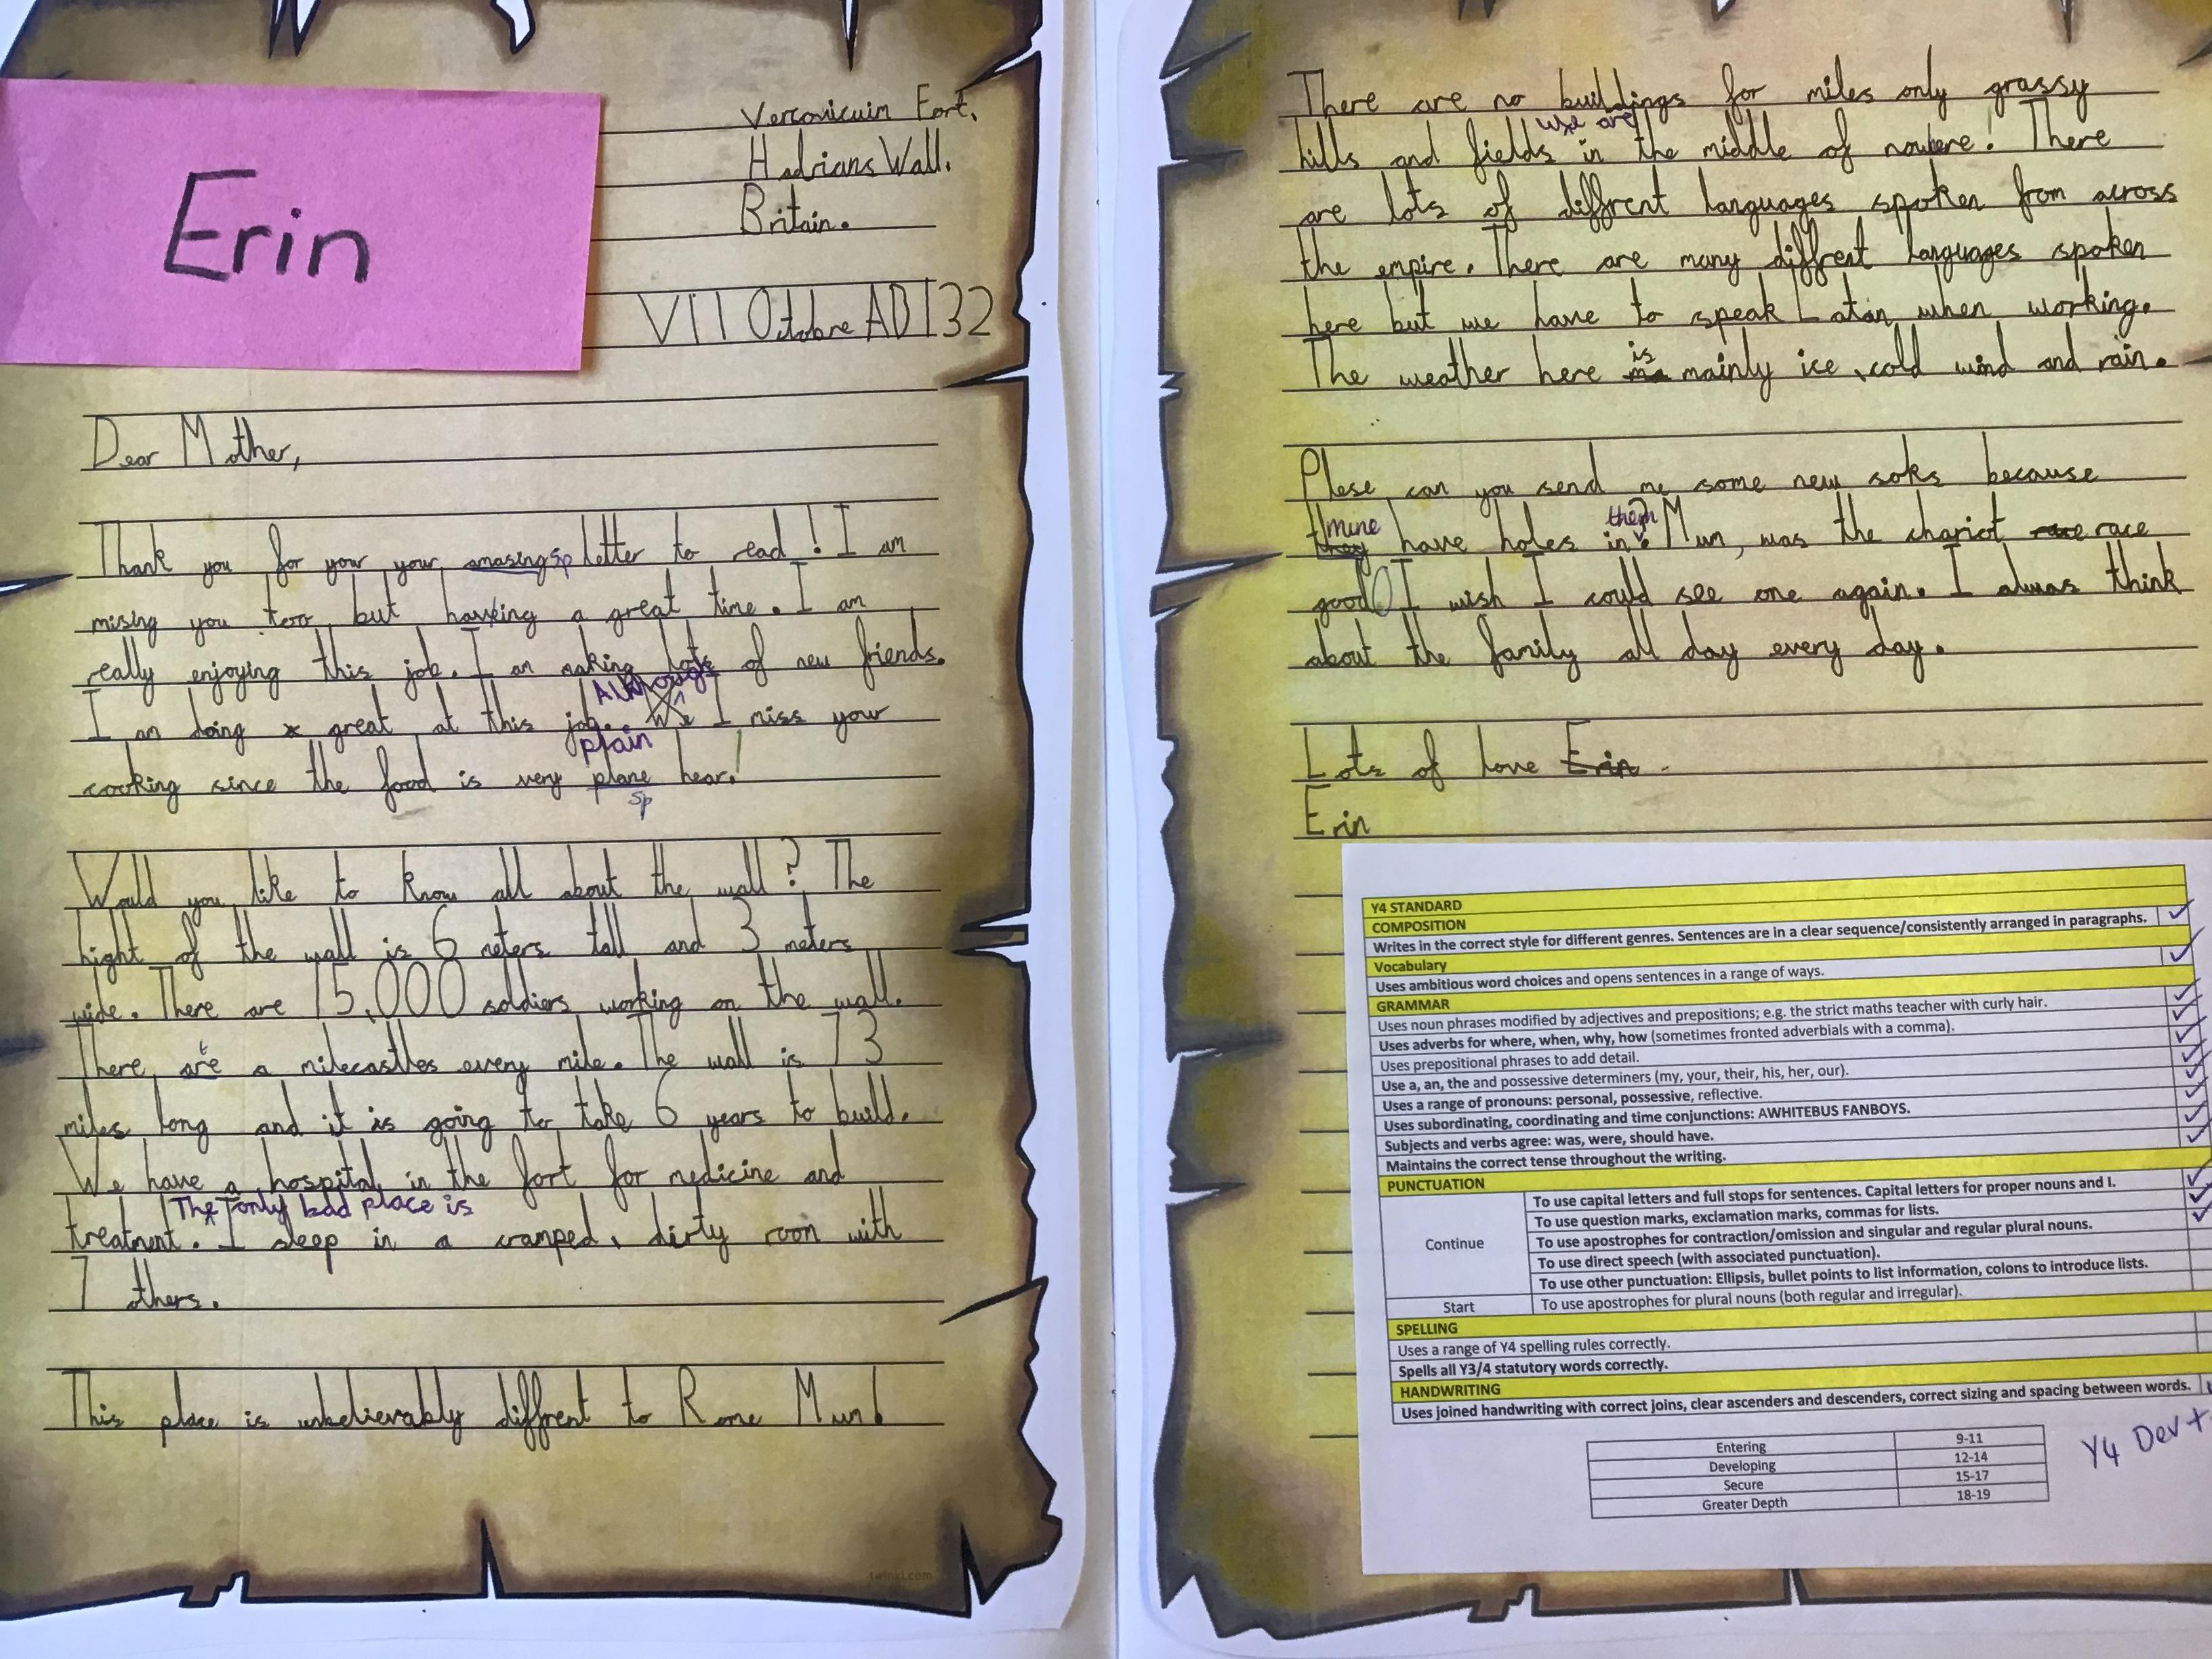 Erin
Vercovicuim Fort,
Hadrians Wall.
Britain.
VII Octobre AD 132
Dear Mother,
Thank you for your your amasing sp letter to read! I am
mising you too but having a great time. I am
really enjoying this job. I am making lots of new friends.
Although
I am doing great at this job. We I miss your
plain
cooking since the food is very plane hear!
sp
Would you like to know all about the wall? The
hight of the wall is 6 meters tall and 3 meters
wide. There are 15,000 soldiers working on the wall.
There are a milecastles every mile. The wall is 73
miles long and it is going to take 6 years to build.
We have a hospital in the fort for medicine and
The only bad place is
treatment. I sleep in a cramped, dirty room with
7 others.
This place is unbelievably diffrent to Rome Mum!
twinkl.com
There are no buildings for miles only grassy
we are
hills and fields in the middle of nowhere! There
are lots of diffrent languages spoken from across
the empire. There are many diffrent languages spoken
here but we have to speak Latan when working.
is
The weather here mainly ice, cold wind and rain.
Plese can you send me some new soks because
mine them
they have holes in. Mum, was the chariot race race
good I wish I could see one again. I alwas think
about the family all day every day.
Lots of love Erin
Erin
Y4 STANDARD
COMPOSITION
Writes in the correct style for different genres. Sentences are in a clear sequence/consistently arranged in paragraphs.
Vocabulary
Uses ambitious word choices and opens sentences in a range of ways.
GRAMMAR
Uses noun phrases modified by adjectives and prepositions; e.g. the strict maths teacher with curly hair.
Uses adverbs for where, when, why, how (sometimes fronted adverbials with a comma).
Uses prepositional phrases to add detail.
Use a, an, the and possessive determiners (my, your, their, his, her, our).
Uses a range of pronouns: personal, possessive, reflective.
Uses subordinating, coordinating and time conjunctions: AWHITEBUS FANBOYS.
Subjects and verbs agree: was, were, should have.
Maintains the correct tense throughout the writing.
PUNCTUATION
Continue
To use capital letters and full stops for sentences. Capital letters for proper nouns and I.
To use question marks, exclamation marks, commas for lists.
To use apostrophes for contraction/omission and singular and regular plural nouns.
To use direct speech (with associated punctuation).
To use other punctuation: Ellipsis, bullet points to list information, colons to introduce lists.
Start To use apostrophes for plural nouns (both regular and irregular).
SPELLING
Uses a range of Y4 spelling rules correctly.
Spells all Y3/4 statutory words correctly.
HANDWRITING
Uses joined handwriting with correct joins, clear ascenders and descenders, correct sizing and spacing between words.
Entering 9-11
Developing 12-14
Secure 15-17
Greater Depth 18-19
Y4 Dev+